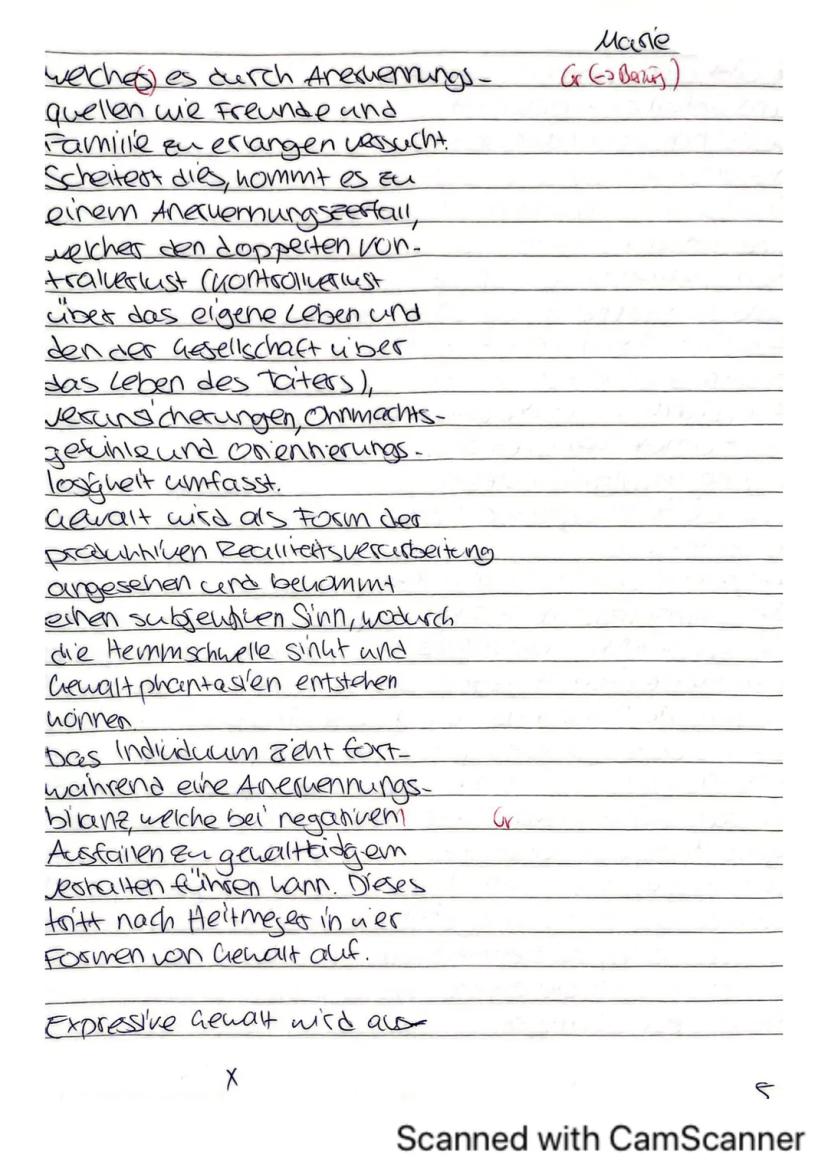 Marie
welches es durch Anerkennungs- Gr (→ Bezug)
quellen wie Freunde und
Familie zu erlangen versucht.
Scheitert dies, kommt es zu
einem Anerkennungszerfall,
welcher den doppelten Kon-
trollverlust (Kontrollverlust
über das eigene Leben und
den der Gesellschaft über
das Leben des Täters),
Verunsicherungen, Ohnmachts-
gefühle und Orientierungs-
losigkeit umfasst.
Gewalt wird als Form der
produktiven Realitätsverarbeitung
angesehen und bekommt
einen subjektiven Sinn, wodurch
die Hemmschwelle sinkt und
Gewaltphantasien entstehen
können
Das Individuum zieht fort-
während eine Anerkennungs-
bilanz, welche bei negativem Gr
Ausfallen zu gewalttätigem
Verhalten führen kann. Dieses
tritt nach Heitmeyer in vier
Formen von Gewalt auf.
Expressive Gewalt wird aus
x
5
Scanned with CamScanner